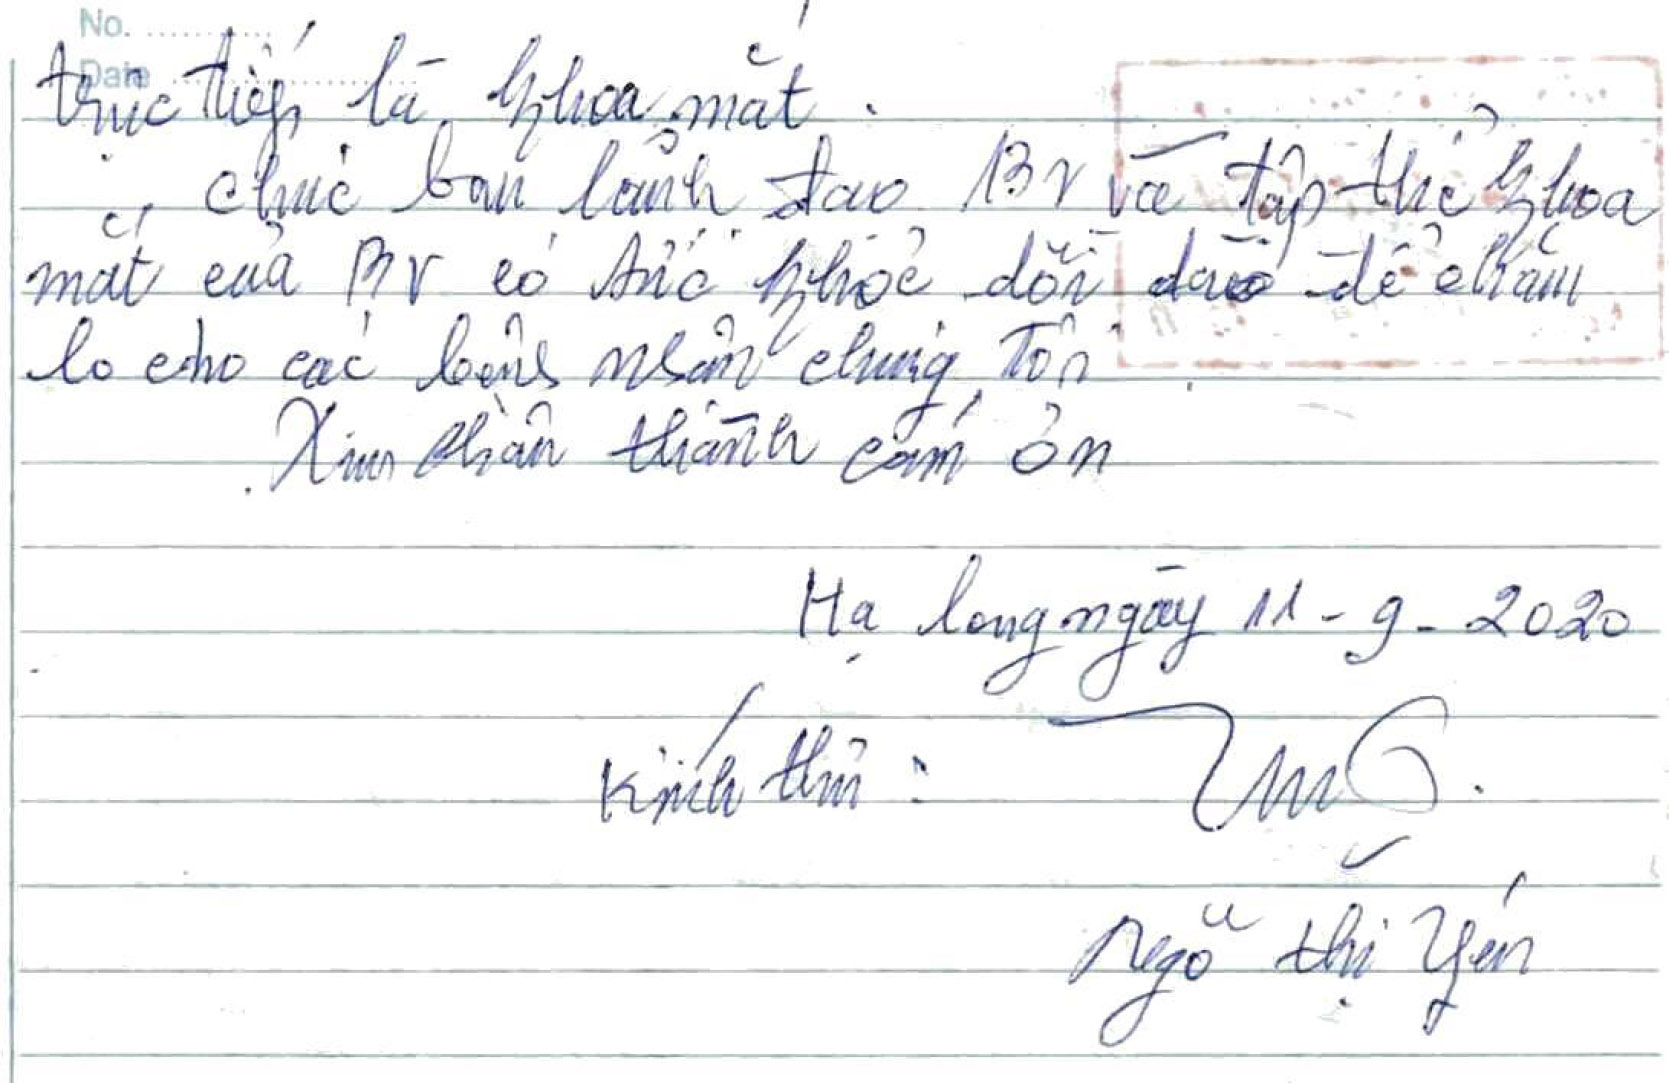 No. ............
Date ........................
trực tiếp là khoa mắt.
chúc ban lãnh đạo BV và tập thể khoa
mắt của BV có sức khỏe dồi dào để chăm
lo cho các bệnh nhân chúng tôi
Xin chân thành cám ơn
Hạ long ngày 11-9-2020
Kính thư:
Ngô thị Yến